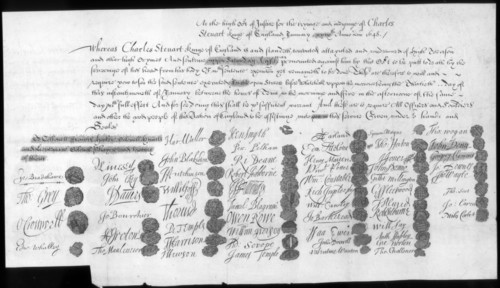 At the high Cot of Justice for the tryinge and iudginge of Charles
Steuart Kinge of England January xxixth Anno Dni 1648
Whereas Charles Steuart Kinge of England is and standeth convicted attaynted and condemned of High Treason
and other high Crymes And sentence uppon Saturday last was pronounced against him by this Cot to be putt to death by the
severinge of his head from his body Of wch sentence execucon yet remayneth to be done These are therefore to will and
require you to see the said sentence executed In the open Streete before Whitehall uppon the morrowe being the Thirtieth day of
this instante moneth of January betweene the houres of Tenn in the morninge and Five in the afternoone of the same
day wth full effect And for soe doing this shall be your sufficient warrant And these are to require All Officers and Souldiers
and other the good people of this Nation of England to be assistinge unto you in this service Given under our hands and
Seales
To Collonell Francis Hacker Colonell Huncks
and Lieutenant Colonell Phayre and to every
of them
Jo Bradshawe
Tho Grey
O Cromwell
Edw Whalley
M Livesey
John Okey
J Danvers
Jo Bourchier
H Ireton
Tho Mauleverer
Har Waller
John Blakiston
J Hutchinson
Willi Goff
Tho Pride
P Temple
T Harrison
J Hewson
Hen Smyth
Per Pelham
Ri Deane
Robert Tichborne
H Edwardes
Daniel Blagrave
Owen Rowe
William Purefoy
Ad Scrope
James Temple
A Garland
Edm Ludlowe
Henry Marten
Vint Potter
Wm Constable
Rich Ingoldesby
Will Cawley
Jo Barkstead
Isaa Ewer
John Dixwell
Valentine Wauton
Symon Mayne
Tho Horton
J Jones
John Moore
Gilbt Millington
G Fleetwood
J Alured
Robt Lilburne
Will Say
Anth Stapley
Gre Norton
Tho Challoner
Tho Wogan
John Venn
Gregory Clement
Jo Downes
Tho Wayte
Tho Scot
Jo Carew
Miles Corbet